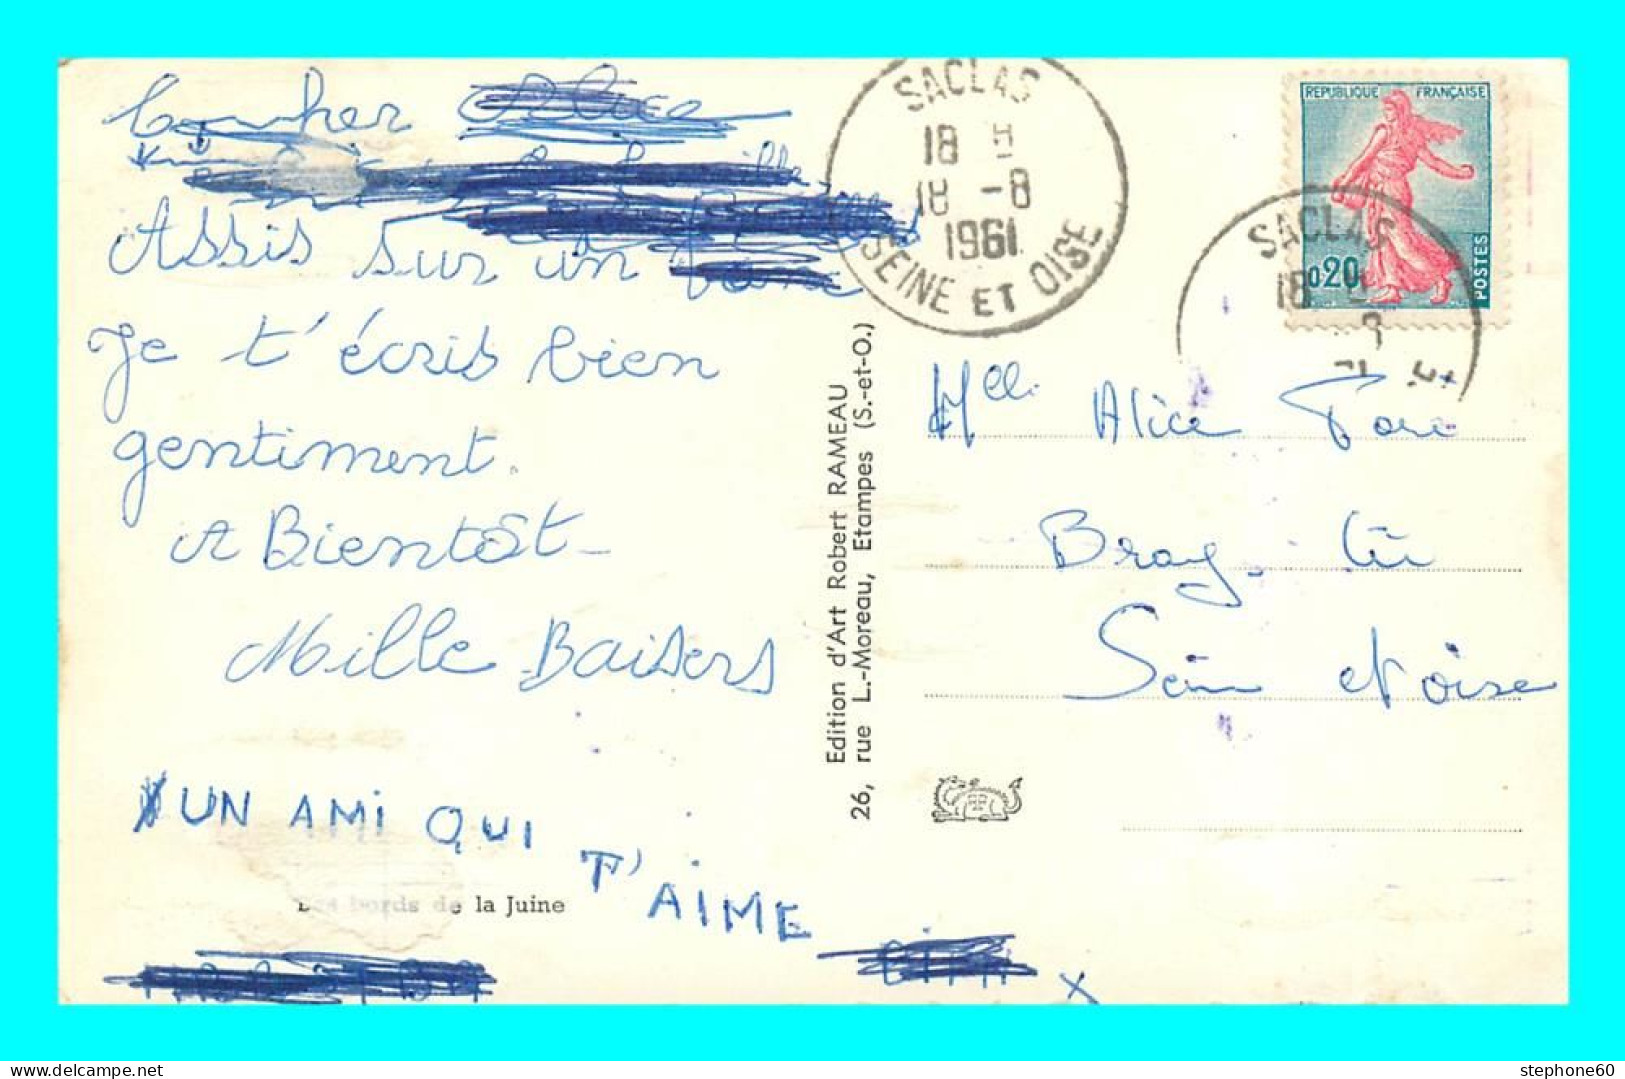 Assis sur un
Je t'écris bien
gentiment.
A Bientôt
Mille Baisers
UN AMI QUI
T'AIME
Les bords de la Juine
Edition d'Art Robert RAMEAU
26, rue L.-Moreau, Etampes (S.-et-O.)
SACLAS
18 H
18 -8
1961
SEINE ET OISE
REPUBLIQUE FRANÇAISE
0,20
POSTES
SACLAS
18
Mlle. Alice
Bray-
Seine et oise
x
stephone60